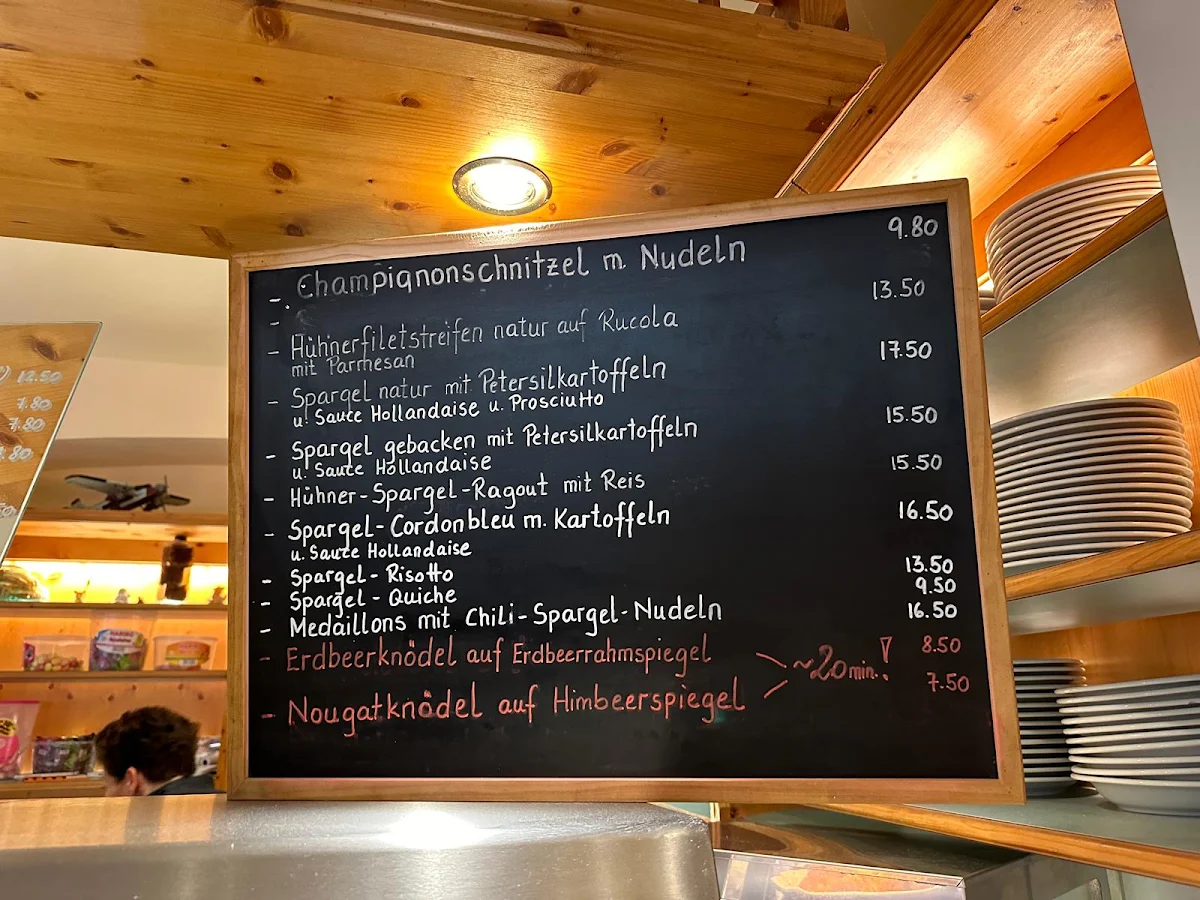 12.50
7.80
7.80
.80
- Champignonschnitzel m. Nudeln 9.80
- Hühnerfiletstreifen natur auf Rucola 13.50
mit Parmesan
- Spargel natur mit Petersilkartoffeln 17.50
u. Sauce Hollandaise u. Prosciutto
- Spargel gebacken mit Petersilkartoffeln 15.50
u. Sauce Hollandaise
- Hühner-Spargel-Ragout mit Reis 15.50
- Spargel-Cordonbleu m. Kartoffeln 16.50
u. Sauce Hollandaise
- Spargel-Risotto 13.50
- Spargel-Quiche 9.50
- Medaillons mit Chili-Spargel-Nudeln 16.50
- Erdbeerknödel auf Erdbeerrahmspiegel 8.50
~20min.!
- Nougatknödel auf Himbeerspiegel 7.50
HARIBO